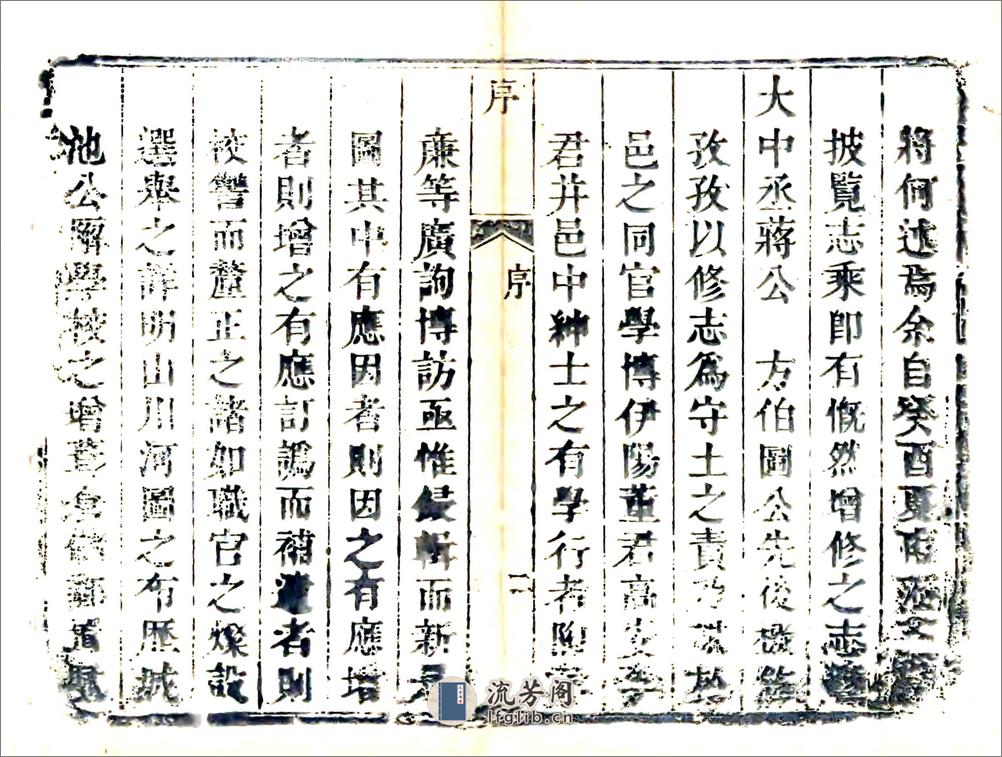 將何述焉余自癸酉夏
披覽志乘即有慨然增修之志
大中丞蔣公 方伯圖公先後檄
孜孜以修志為守土之責乃
邑之同官學博伊陽董君高
君并邑中紳士之有學行者
序
序
二
廉等廣詢博訪亟惟侵輯而新
圖其中有應因者則因之有應增
者則增之有應訂譌而補遺者則
校讐而釐正之諸如職官之燦設
選舉之詳明山川河圖之布歷城
池公廨學校之增葺
流芳阁
lfglib.cn